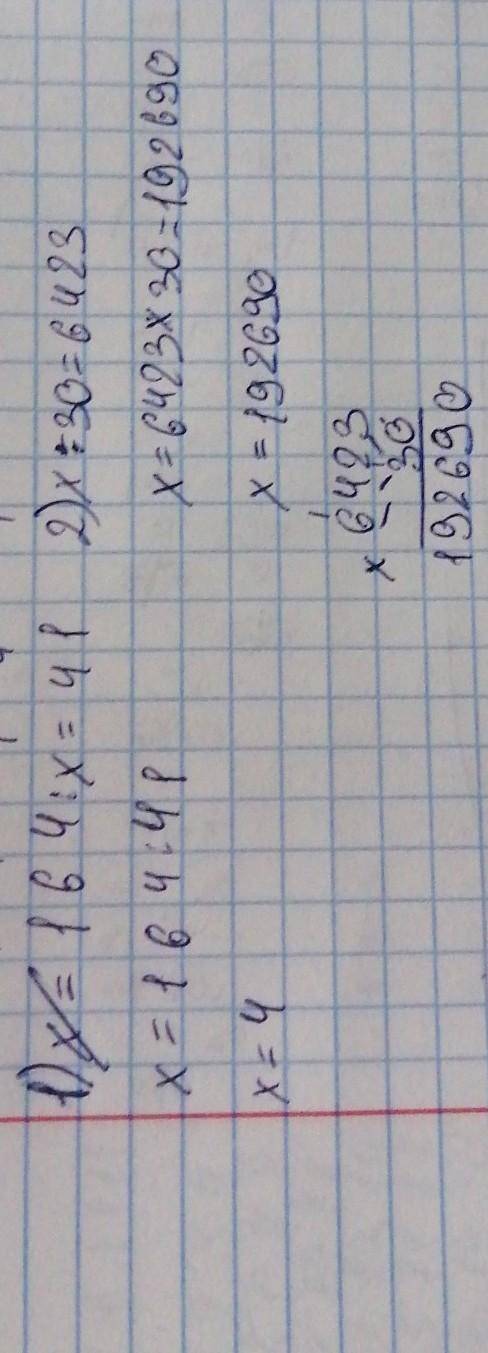 1) x = 164 : x = 41
x = 164 : 41
x = 4
2) x : 30 = 6423
x = 6423 x 30 = 192690
x = 192690
1
x 6423
30
192690